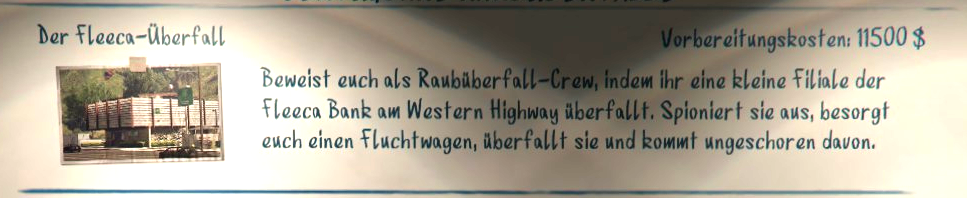 Der Fleeca-Überfall
Vorbereitungskosten: 11500 $
Beweist euch als Raubüberfall-Crew, indem ihr eine kleine Filiale der
Fleeca Bank am Western Highway überfallt. Spioniert sie aus, besorgt
euch einen Fluchtwagen, überfallt sie und kommt ungeschoren davon.